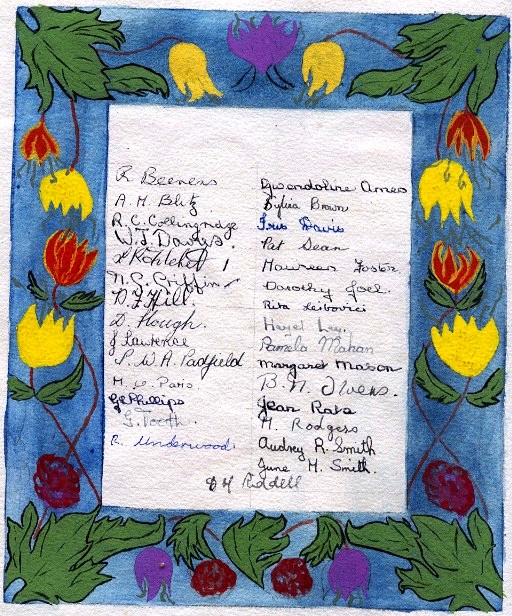 R Beevers
A. H. Blitz
R. C. Collingridge
W. J. Davys.
N. G. Griffin
D. J. Hill.
D. Hough.
J Lawrence
P. W. A. Padfield
H. Paris.
G Phillips
G. Tooth.
R. Underwood.
Gwendoline Ames
Sylvia Brown
Iris Davis
Pat Dean
Maureen Foster
Dorothy Joel.
Rita Leibovici
Hazel Ley.
Pamela Mahan
Margaret Mason
B. N. Owens.
Jean Rase
M. Rodgers
Audrey R. Smith
June M. Smith.
Riddell